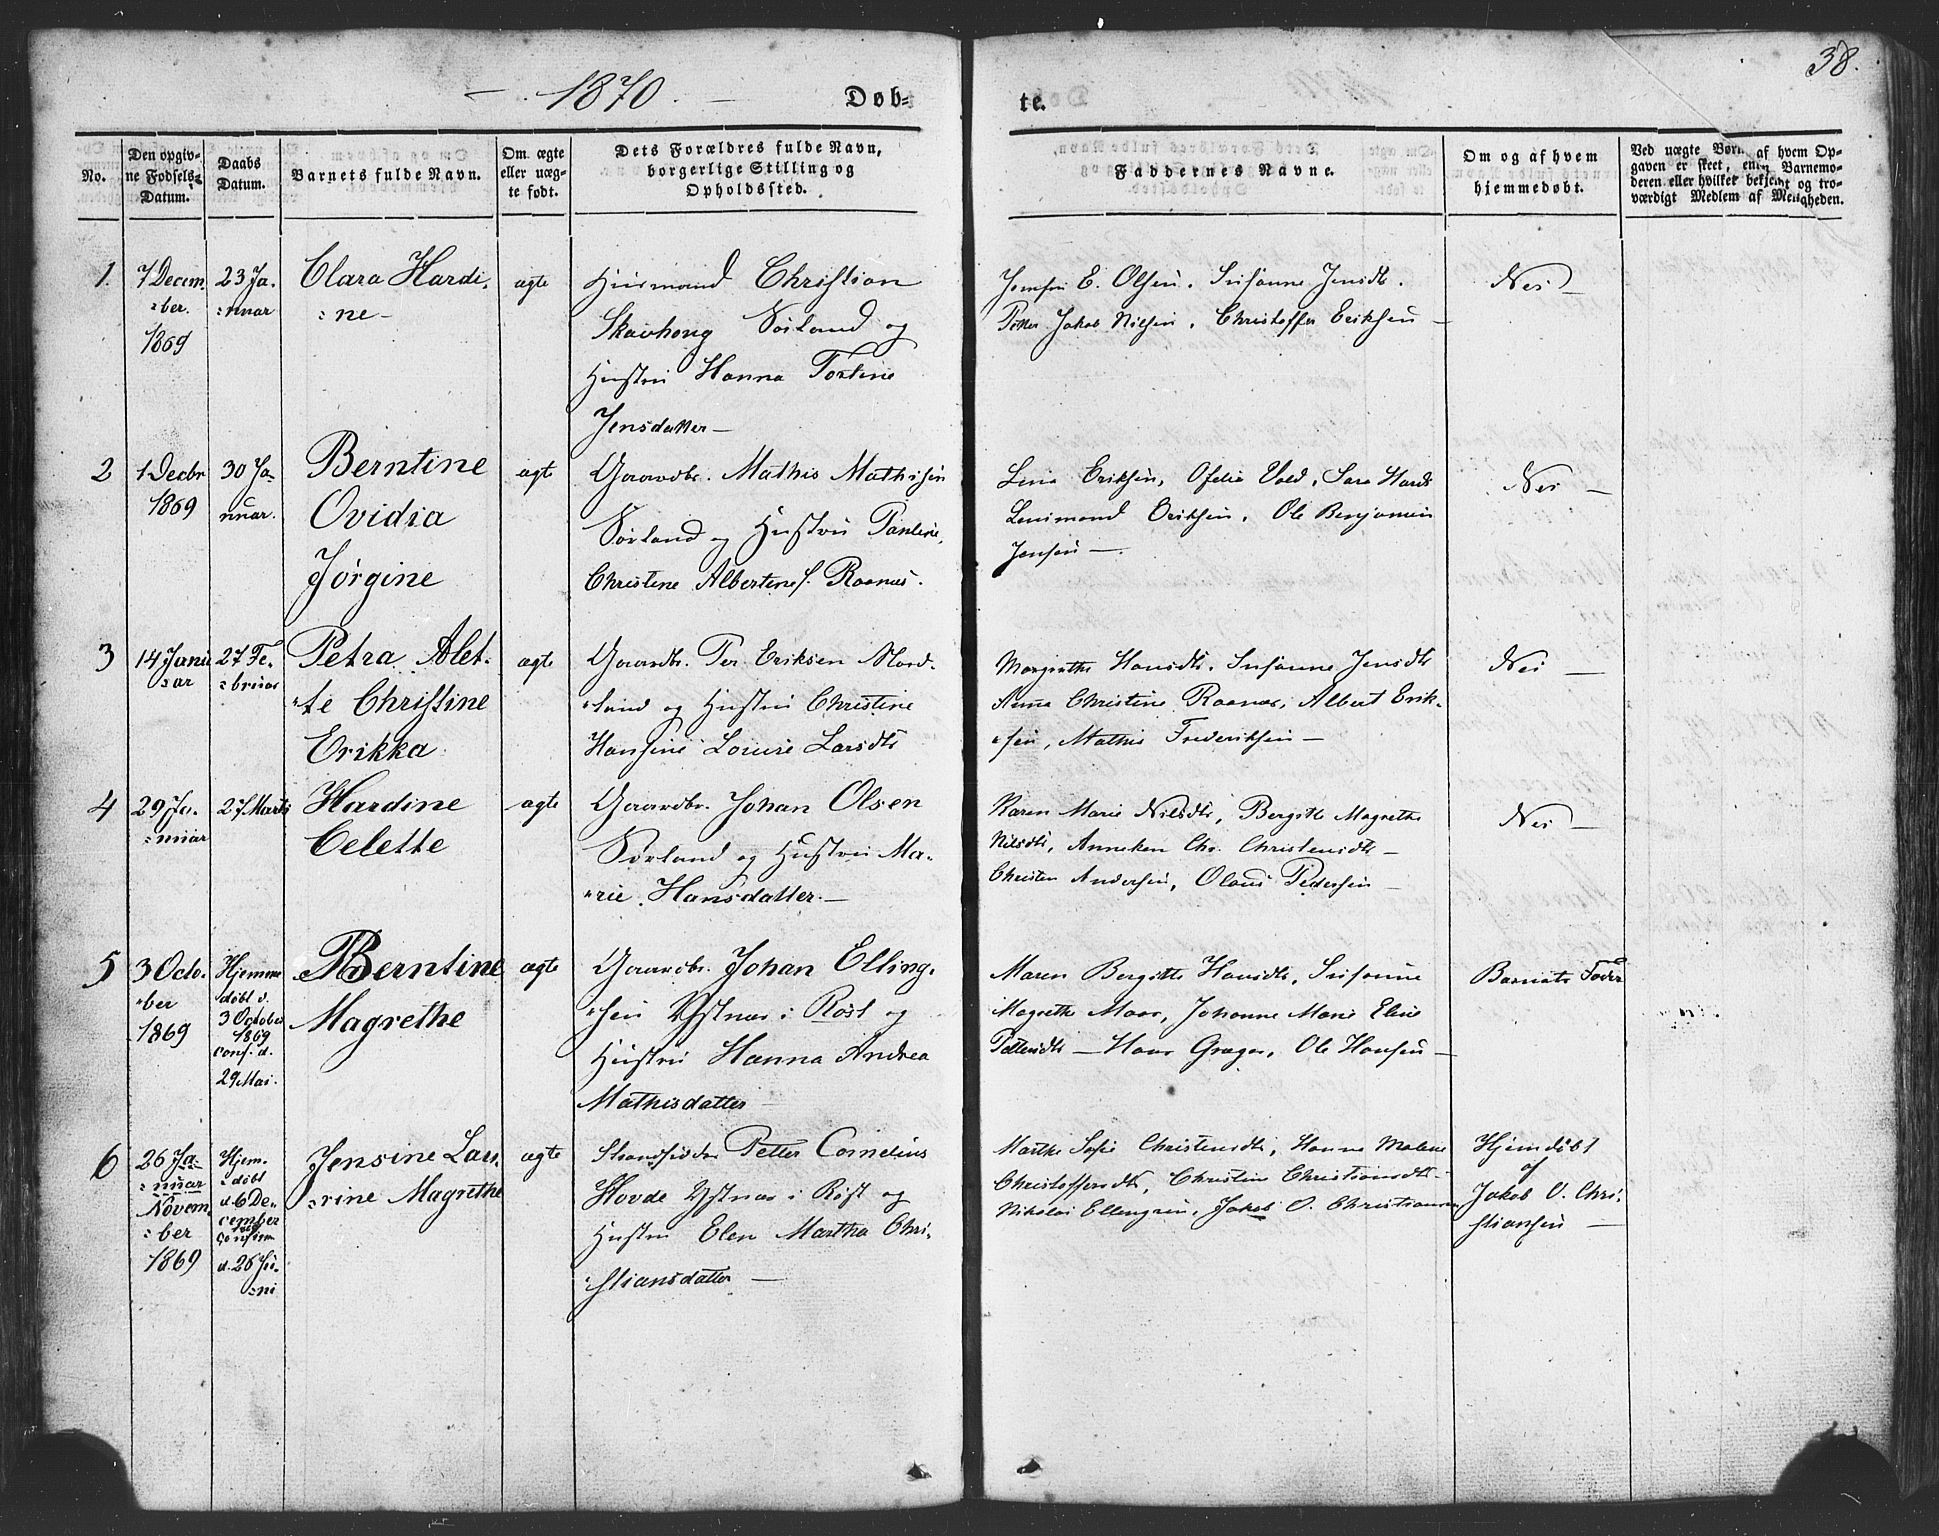 38.
1870. Døb-
te.
No.
Den opgiv-
ne Fødsels-
Datum.
Daabs
Datum.
Barnets fulde Navn.
Om ægte
eller uæg-
te født.
Dets Forældres fulde Navn,
borgerlige Stilling og
Opholdssted.
Faddernes Navne.
Om og af hvem
hjemmedøbt.
Ved uægte Børn, af hvem Op-
gaven er skeet, enten Barnemo-
deren eller hvilket bekjendt og tro-
værdigt Medlem af Menigheden.
1.
7 Decem
:ber.
1869
23 Ja.
:nuar
Clara Hardi.
:ne-
ægte
Huusmand Christian
Skavhong Sørland og
Hustru Hanna Torline
Jensdatter-
E. Olsen. Susanne Jensdtr.
Petter Jakob Nilsen. Christoffer Eriksen-
Nei-
2
1 Decbr
1869
30 Ja-
nuar.
Berntine
Ovidia
Jørgine
ægte
Gaardbr. Mathis Mathisen
Sørland og Hustru
Christine Albertine Raanæs.
Lina Eriksen, Ofelia Vold, Sara
Eriksen, Ole Benjamin
Jensen-
Nei-
3
14 Janu
:ar
27 Fe.
:bruar
Petra Alet.
"te Christine
Erikka
ægte
Gaardbr. Per Eriksen Nord.
"land og Hustru Christine
Hansine Louise Larsdtr
Margrethe Hansdtr. Susanne Jensdtr
Anna Christine Raanæs, Albert Erik.
"sen, Mathis Frederiksen-
Nei-
4
29 Ja.
:nuar
27 Marts
Hardine
Celette
ægte
Gaardbr. Johan Olsen
Sørland og Hustru Ma.
"rie Hansdatter.-
Karen Marie Nilsdtr, Bergitte Magrethe
Nilsdtr, Anneken Chr. Christensdtr-
Christen Andersen, Olaus Pedersen-
Nei-
5
3 Octo.
"ber
1869
Hjemme
døbt d.
3 October
1869
conf. d.
29 Mai.
Berntine
Magrethe
ægte
Gaardbr. Johan Elling.
"sen Ystnæs i Røst og
Hustru Hanna Andrea
Mathisdatter-
Maren Bergitte Hansdtr, Susanne
Magrethe Maar, Johanne Marie Eline
Pettersdtr- Hans Greger, Ole Hansen-
Barnets Fader
6
26 Ja
:nuar
Novem
:ber
1869
Hjem.
:døbt
d. 6 De-
cember
1869
d. 26 Ju-
:ni
Jensine Lau.
:rine Magrethe
ægte
Strandsidder Petter Cornelius
Hovde Ystnæs i Røst og
Hustru Elen Martha Chri.
:stiansdatter-
Marthe Sofie Christensdtr, Hanna Malene
Christoffersdtr, Christin Christiansdtr-
Nikolai Ellingsen, Jakob O. Christiansen
Hjemdøbt
af
Jakob O. Chri.
stiansen-